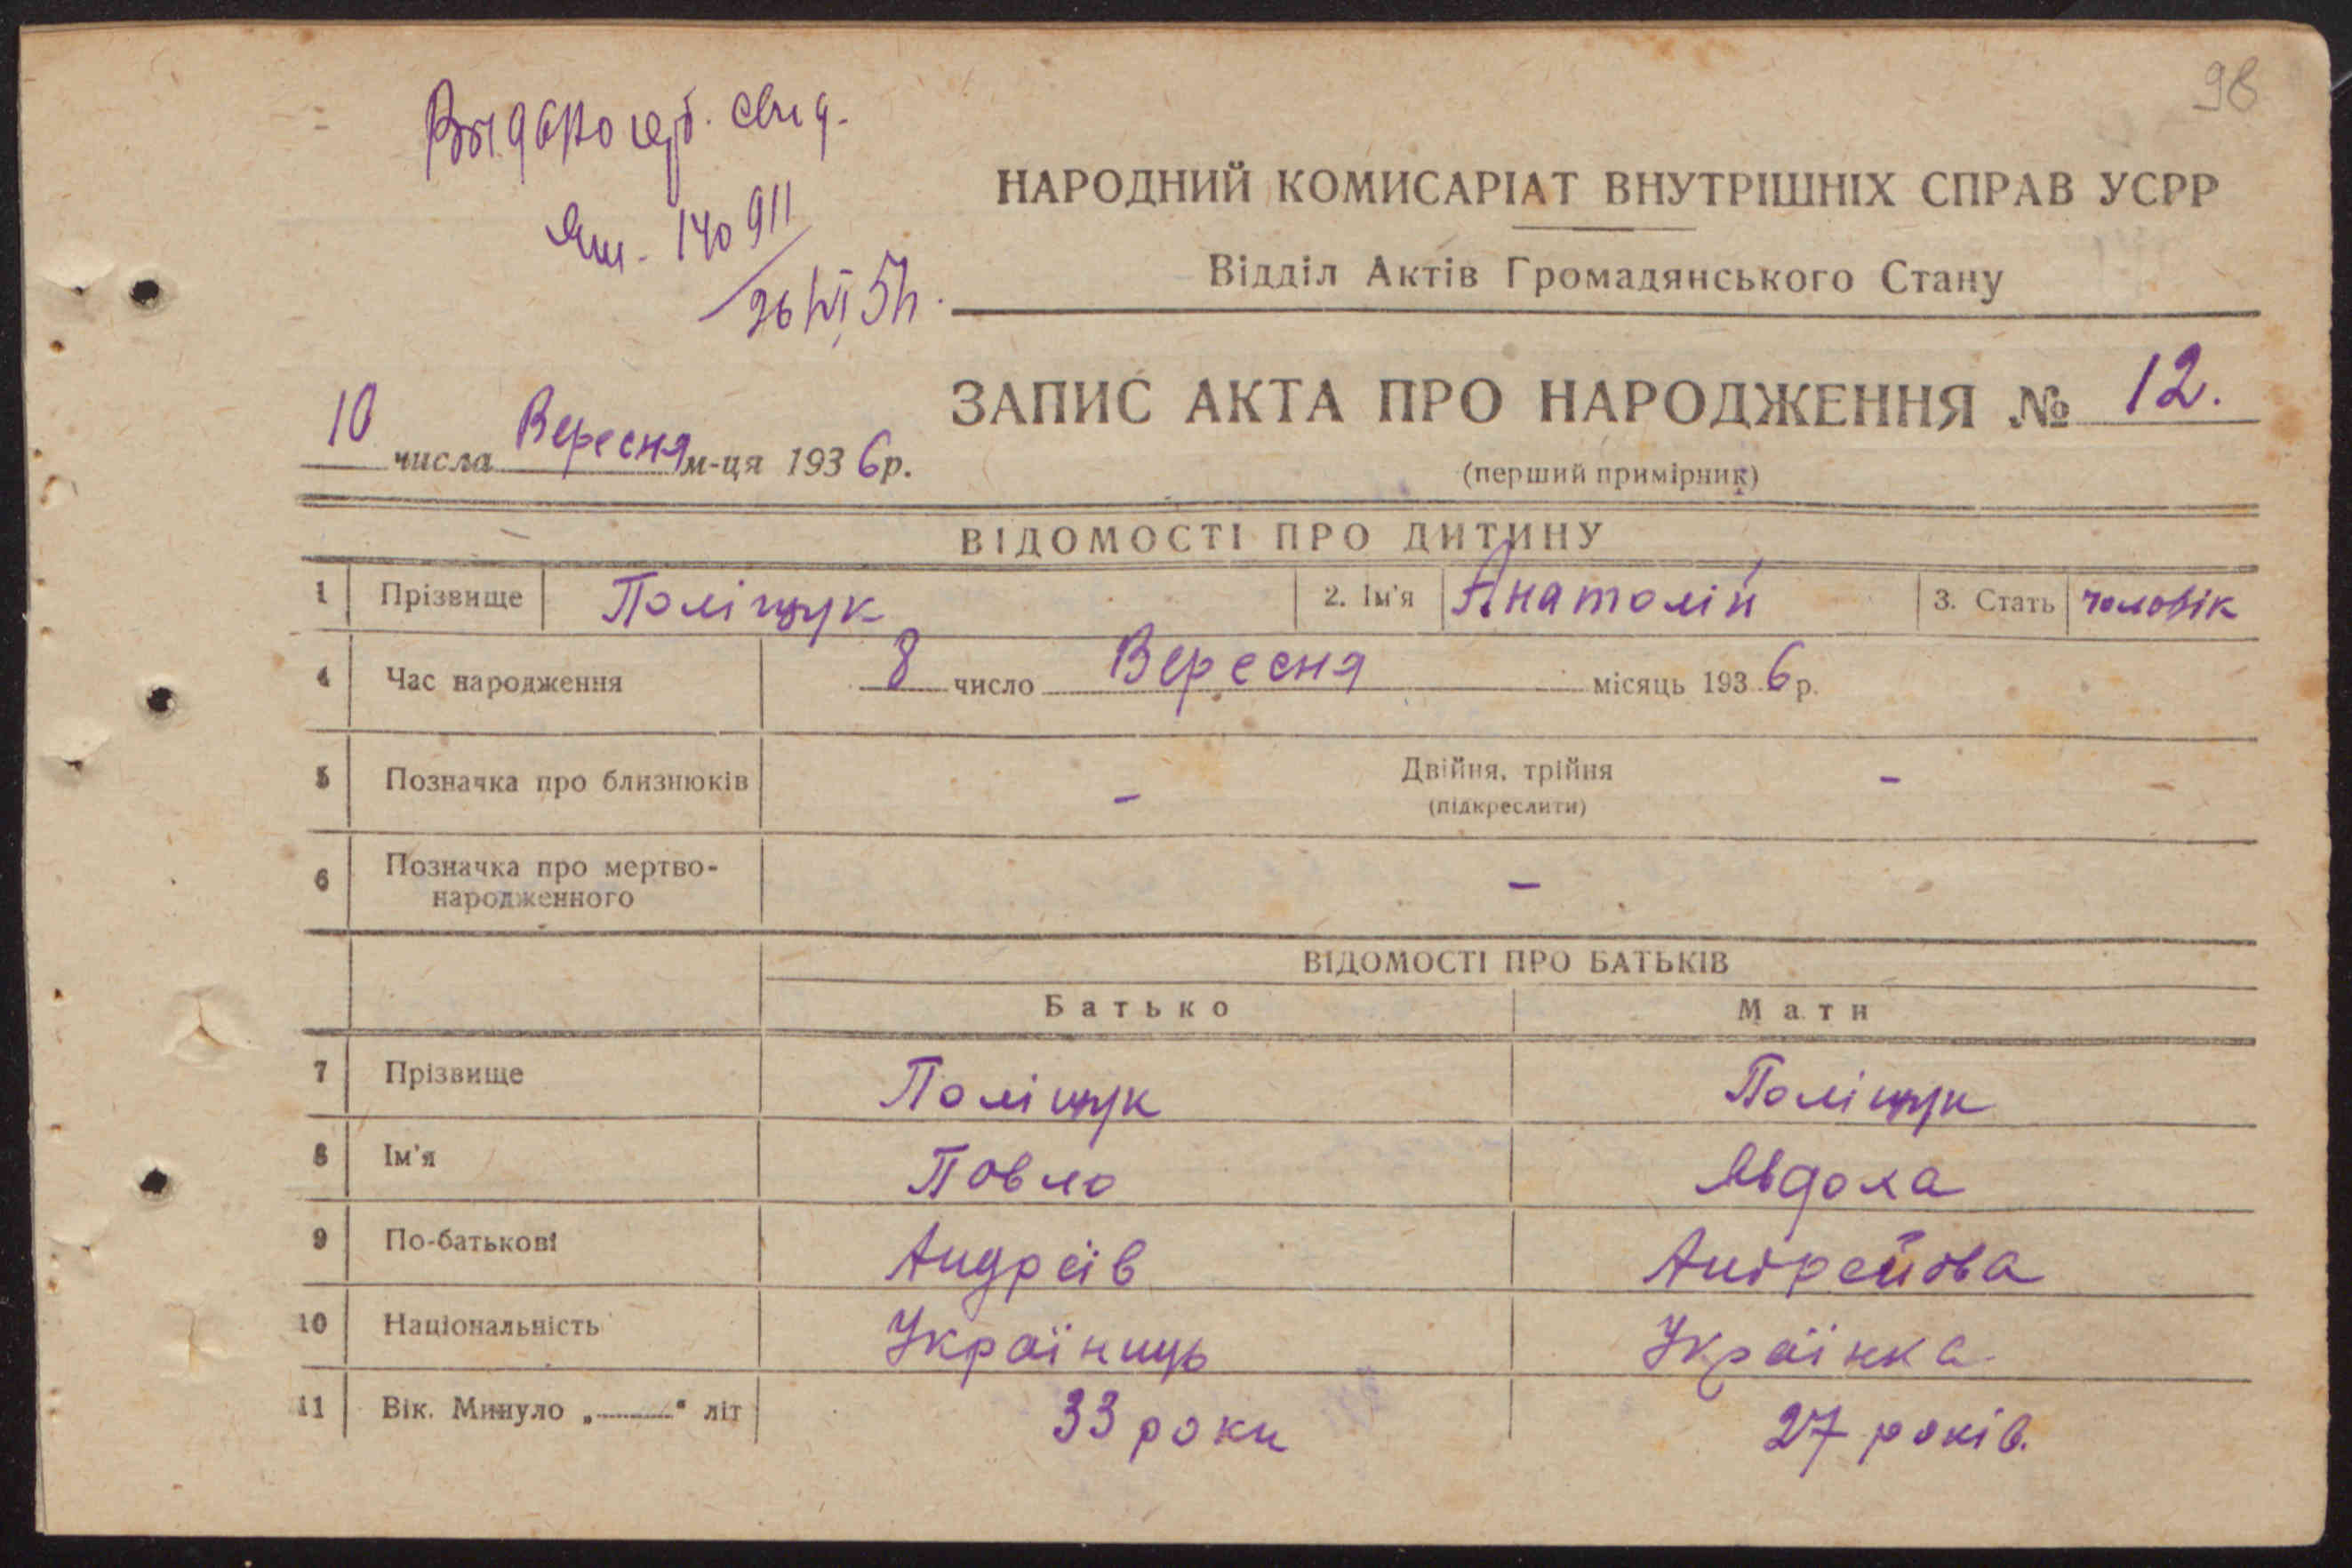 98
Выдано свид.
140911
26/VI 54.
НАРОДНИЙ КОМИСАРІАТ ВНУТРІШНІХ СПРАВ УСРР
Відділ Актів Громадянського Стану
ЗАПИС АКТА ПРО НАРОДЖЕННЯ № 12.
10 числа Вересня м-ця 1936 р.
(перший примірник)
ВІДОМОСТІ ПРО ДИТИНУ
1 Прізвище Поліщук 2. Ім'я Анатолій 3. Стать чоловік
4 Час народження 8 число Вересня місяць 1936 р.
5 Позначка про близнюків - Двійня, трійня -
(підкреслити)
6 Позначка про мертво-
народженного -
ВІДОМОСТІ ПРО БАТЬКІВ
Батько Мати
7 Прізвище Поліщук Поліщук
8 Ім'я Повло Явдоха
9 По-батькові Андреїв Андрейова
10 Національність Українець Українка
11 Вік. Минуло „ “ літ 33 роки 27 років.